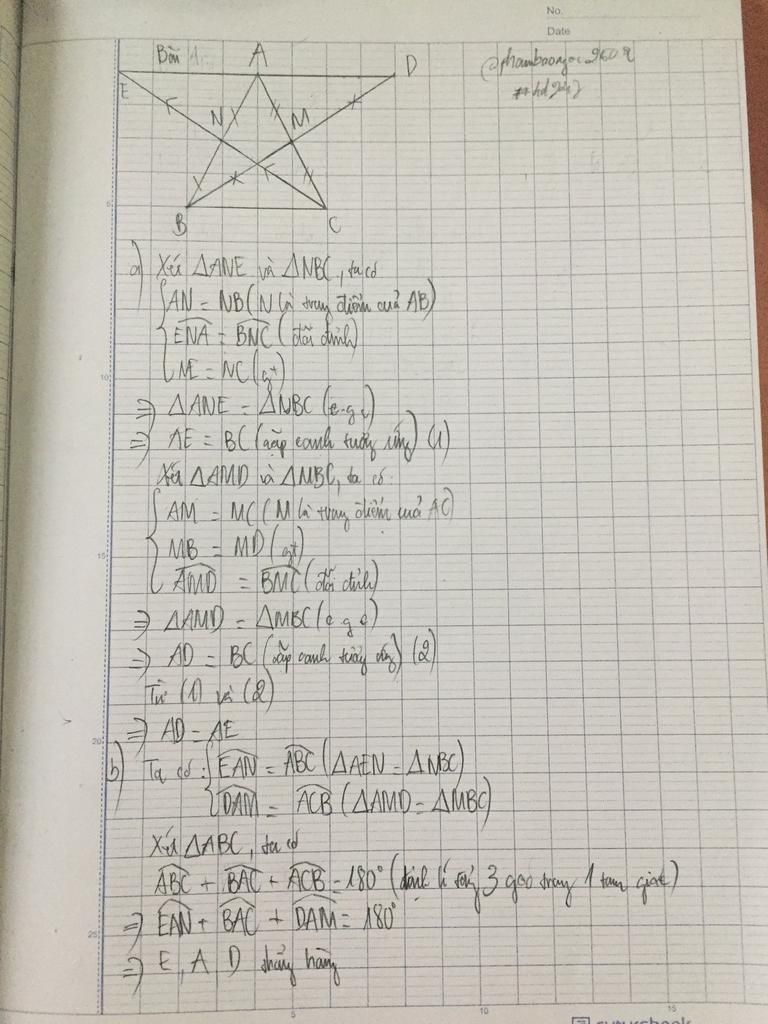 No.
Date
Bài 1.
A
D
E
N
M
B
C
@phambaongoc9609
5
a) Xét ΔANE và ΔNBC, ta có
AN = NB (N là trung điểm của AB)
ENA = BNC (đối đỉnh)
NE = NC (gt)
10
⇒ ΔANE = ΔNBC (c-g-c)
⇒ AE = BC (cặp cạnh tương ứng) (1)
Xét ΔAMD và ΔMBC, ta có
AM = MC (M là trung điểm của AC)
MB = MD (gt)
15
AMD = BMC (đối đỉnh)
⇒ ΔAMD = ΔMBC (c g c)
⇒ AD = BC (cặp cạnh tương ứng) (2)
Từ (1) và (2)
⇒ AD = AE
20
b) Ta có: EAN = ABC (ΔAEN = ΔNBC)
DAM = ACB (ΔAMD = ΔMBC)
Xét ΔABC, ta có
ABC + BAC + ACB = 180° (định lí tổng 3 góc trong 1 tam giác)
⇒ EAN + BAC + DAM = 180°
25
⇒ E, A, D thẳng hàng
5 10 15